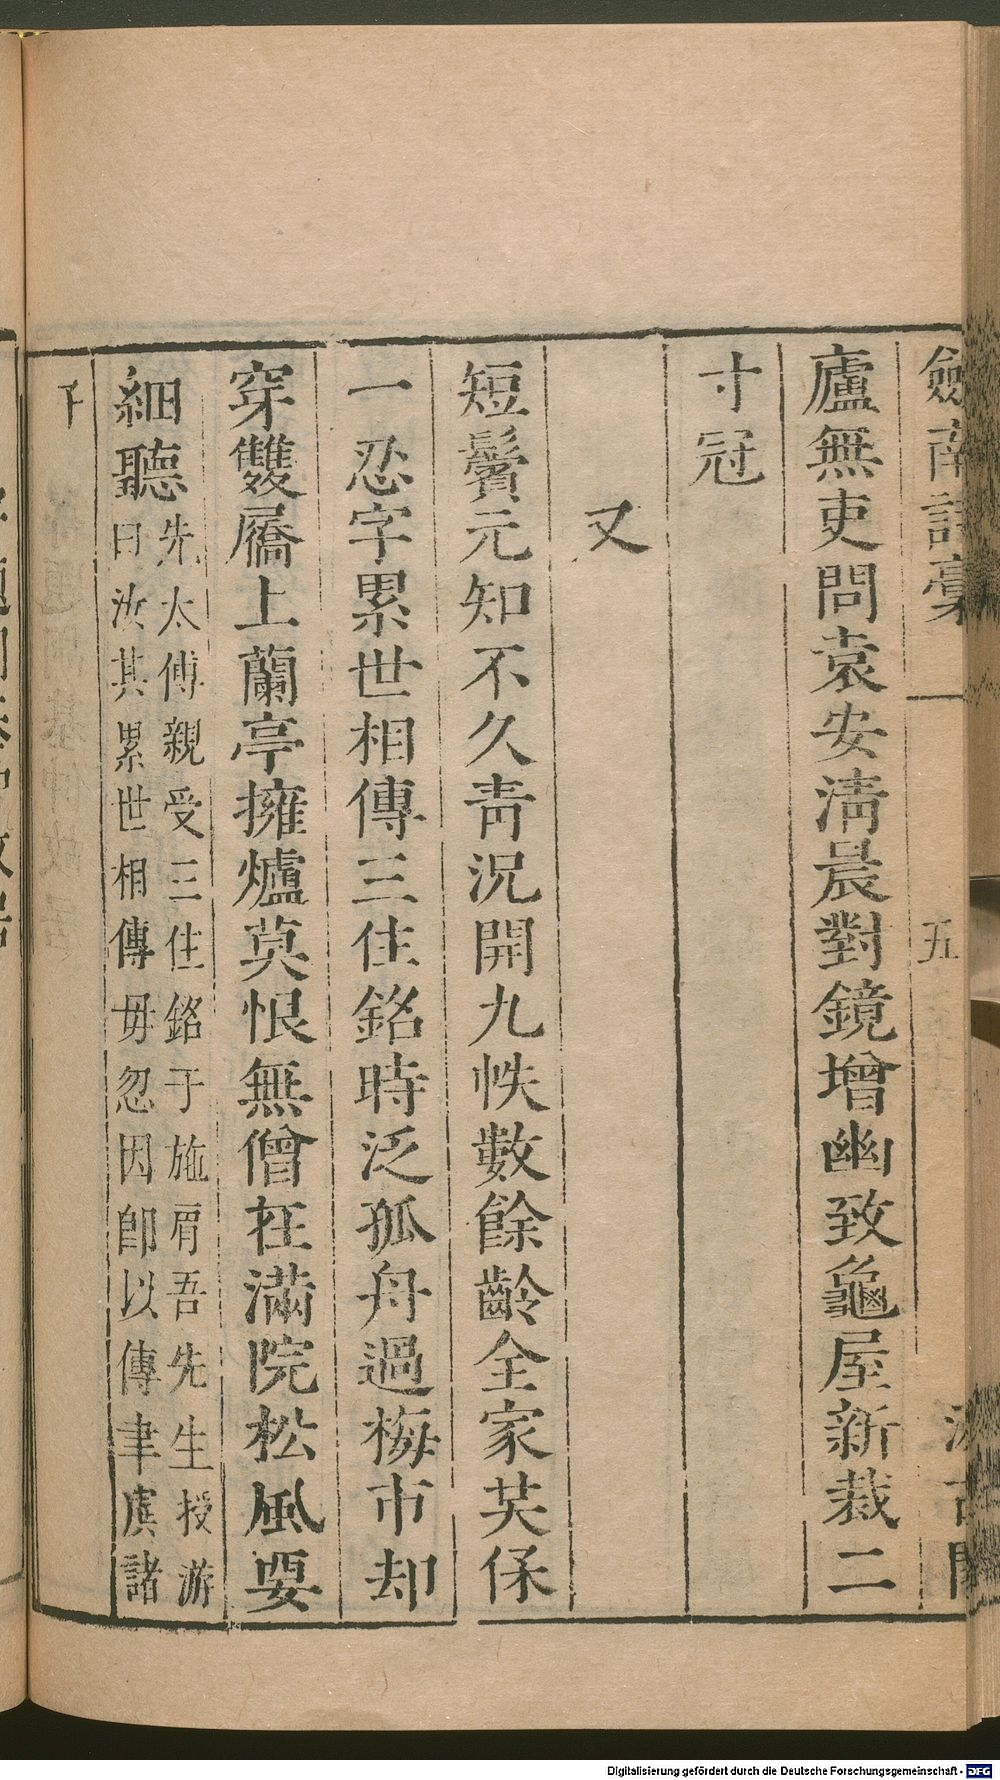 劒南詩稾 五 汲古閣
廬無吏問袁安淸晨對鏡增幽致龜屋新裁二
寸冠
又
短鬢元知不久靑況開九帙數餘齡全家共保
一忍字累世相傳三住銘時泛孤舟過梅市却
穿雙屩上蘭亭擁爐莫恨無僧在滿院松風要
細聽
先太傅親受三住銘于施肩吾先生授游
曰汝其累世相傳毋忽因卽以傳聿虡諸
Digitalisierung gefördert durch die Deutsche Forschungsgemeinschaft - DFG